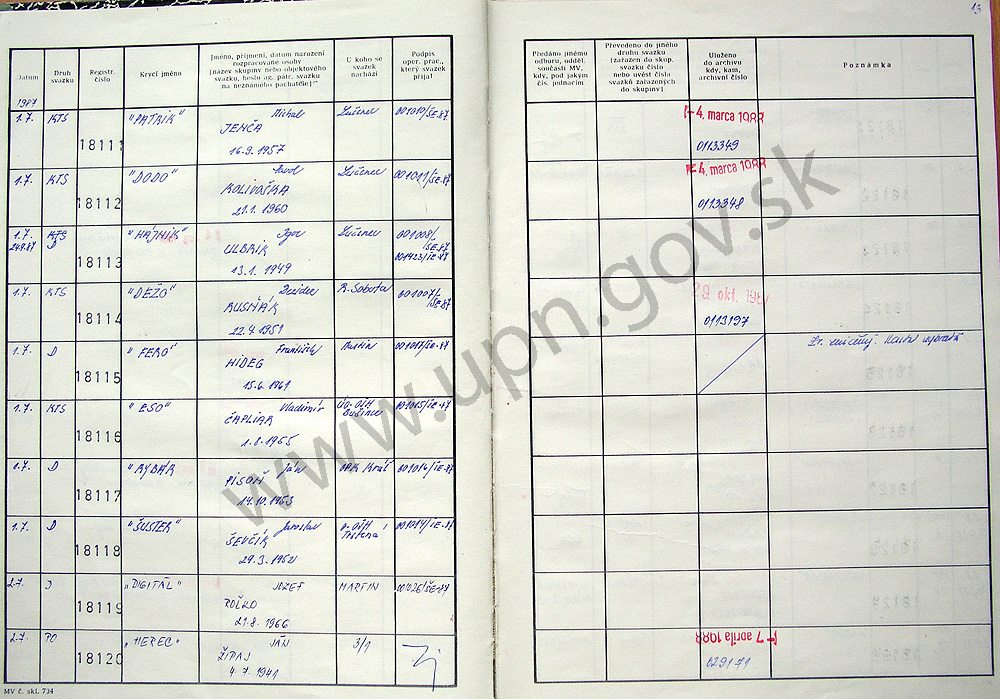 13
Datum
Druh svazku
Registr. číslo
Krycí jméno
Jméno, příjmení, datum narození
rozpracované osoby
(název skupiny nebo objektového
svazku, heslo ag. pátr. svazku
na neznámého pachatele)
U koho se
svazek
nachází
Podpis
oper. prac.,
který svazek
přijal
Předáno jinému
odboru, odděl.
součásti MV,
kdy, pod jakým
čís. jednacím
Převedeno do jiného
druhu svazku
(zařazen do skup.
svazku číslo
nebo uvést číslo
svazků zařazených
do skupiny)
Uloženo
do archivu
kdy, kam,
archivní číslo
Poznámka
1987
1.7. KTS 18111 "PATRIK" Michal Lučenec 001010/ŠE-87
JENČA
16.9. 1957
- 4. marca 1988
0113349
1.7. KTS 18112 "DODO" Pavol Lučenec 001011/ŠE-87
KOLIVOŠKA
21.1. 1960
- 4. marca 1988
0113348
1.7. KTS 18113 "HÁJNIK" Igor Lučenec 001008/ŠE-87
24.9.87 D
ULBRIK
13.1. 1949
1.7. KTS 18114 "DEŽO" Dezider R. Sobota 001007/ŠE-87
RUSŇÁK
22.4. 1951
29. okt. 1987
0113197
1.7. D 18115 "FERO" František Martin
HIDEG
15.6. 1961
Zv. zničený.
1.7. KTS 18116 "ESO" Vladimír
ČAPLIAR
1.8. 1965
1.7. D 18117 "RYBÁR" Ján
PISOŇ
14.10. 1953
1.7. D 18118 "ŠUSTER" Jaroslav
ŠEVČÍK
29.3. 1952
2.7. 18119 "DIGITÁL" JOZEF MARTIN 001026/ŠE-87
ROŠKO
21.8. 1966
2.7. PO 18120 "HEREC" JÁN 3/1
ŽIPAJ
4. 7. 1941
- 7 apríla 1988
029171
MV č. skl. 734
www.upn.gov.sk